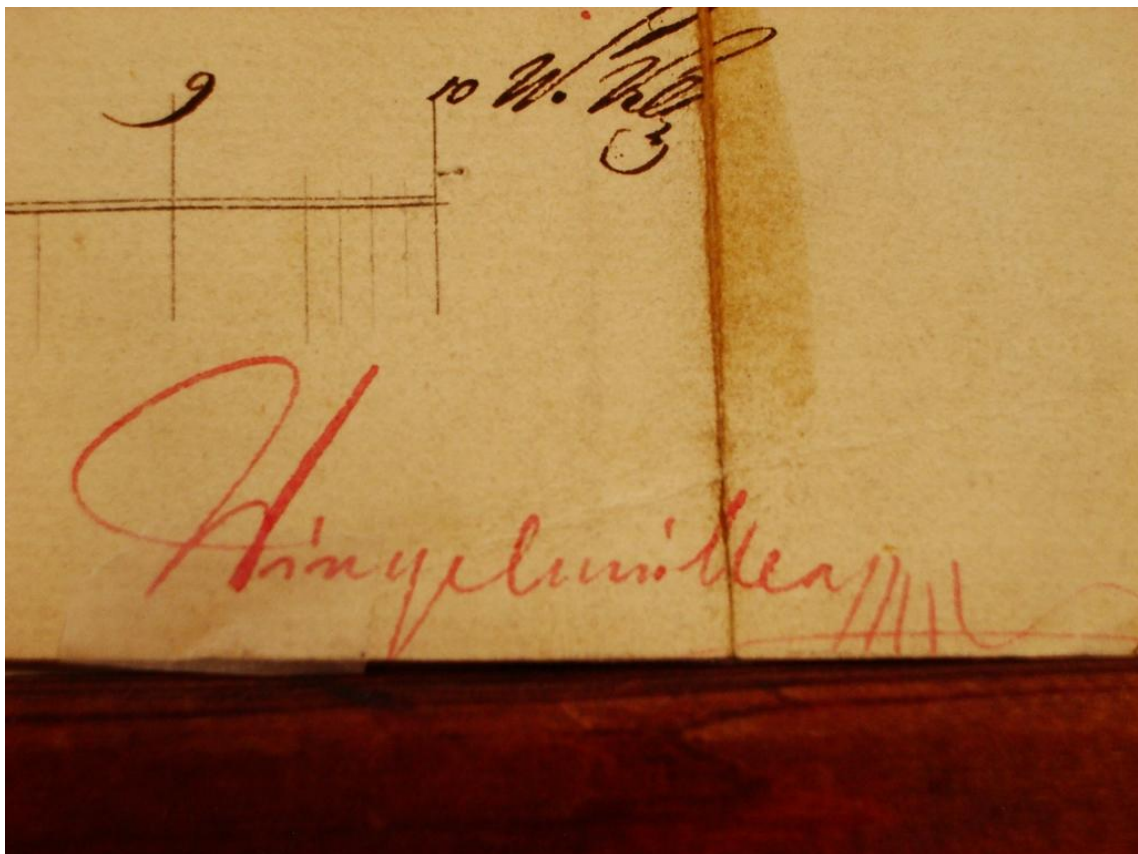 9 10 W. Klf
Hingelmüller